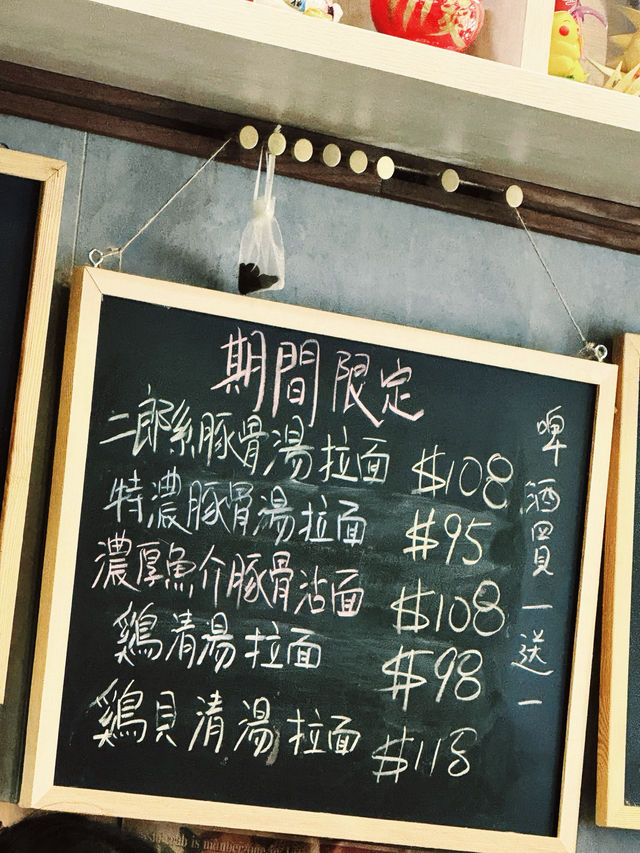 期間限定
二郎系豚骨湯拉面 $108
特濃豚骨湯拉面 $95
濃厚魚介豚骨沾面 $108
鶏清湯拉面 $98
鶏貝清湯拉面 $118
啤酒買一送一